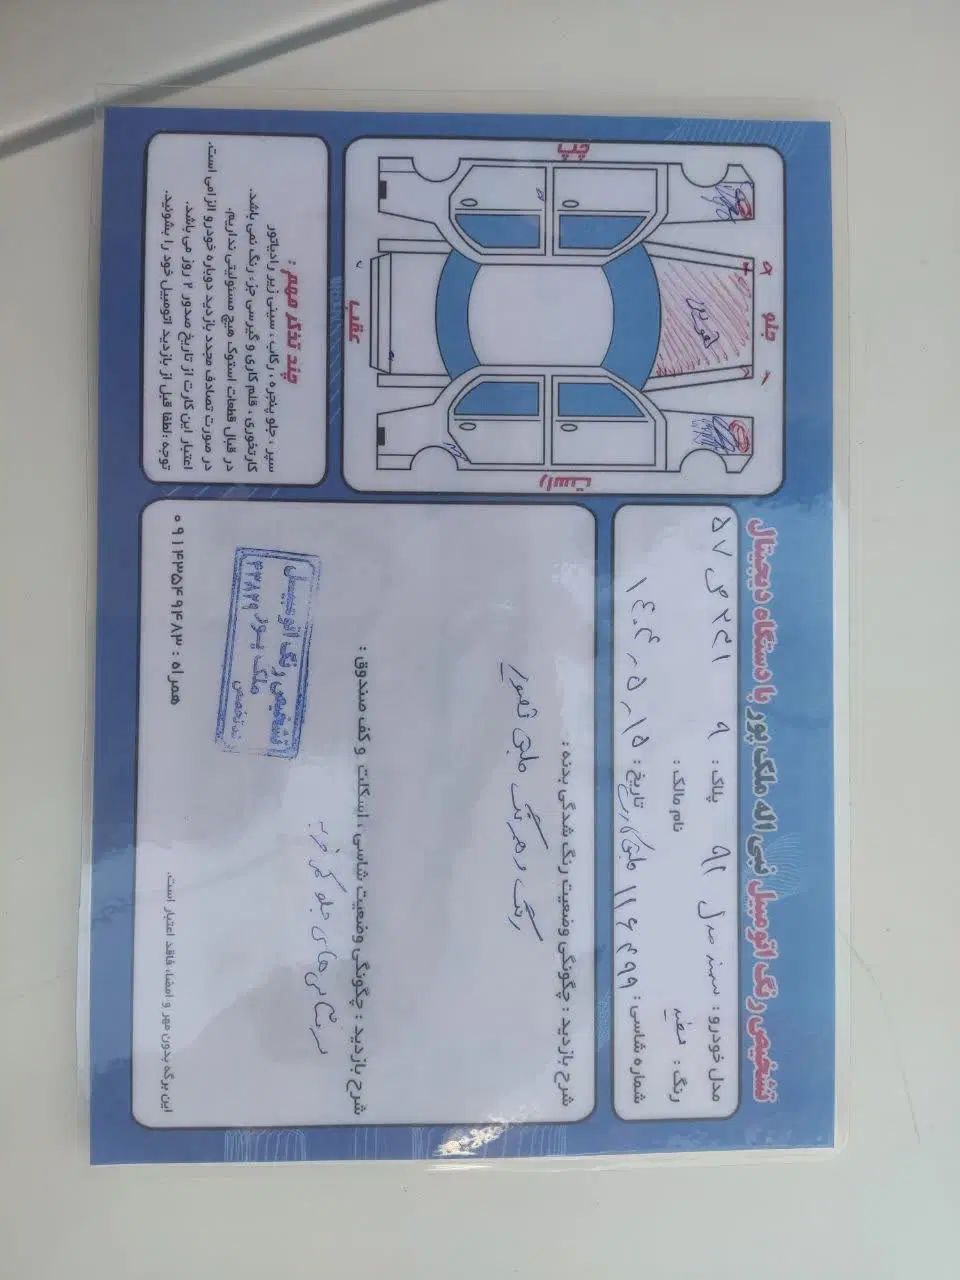 تشخیص رنگ اتومبیل نبی اله ملک پور با دستگاه دیجیتال
مدل خودرو : سمند مدل ۹۲ پلاک : ۹ ۲۴۱ ص ۵۷
رنگ : سفید نام مالک :
شماره شاسی : ۱۱۶۴۹۹ تاریخ : ۱۴۰۴٫۵٫۱۵
شرح بازدید : چگونگی وضعیت رنگ شدگی بدنه :
رنگ
شرح بازدید : چگونگی وضعیت شاسی ، اسکلت و کف صندوق :
سرشاسی های جلو
تشخیص رنگ اتومبیل
ملک پور
این برگه بدون مهر و امضاء فاقد اعتبار است.
همراه : ۰۹۱۴۳۵۴۹۴۸۳
چپ
جلو
تعویض
عقب
راست
چند تذکر مهم :
سپر ، جلو پنجره ، رکاب ، سینی زیر رادیاتور
کارتخوری ، قلم کاری و گیرسی جزء رنگ نمی باشد.
در قبال قطعات استوک هیچ مسئولیتی نداریم.
در صورت تصادف مجدد بازدید دوباره خودرو الزامی است.
اعتبار این کارت از تاریخ صدور ۲ روز می باشد.
توجه : لطفا قبل از بازدید اتومبیل خود را بشوئید.